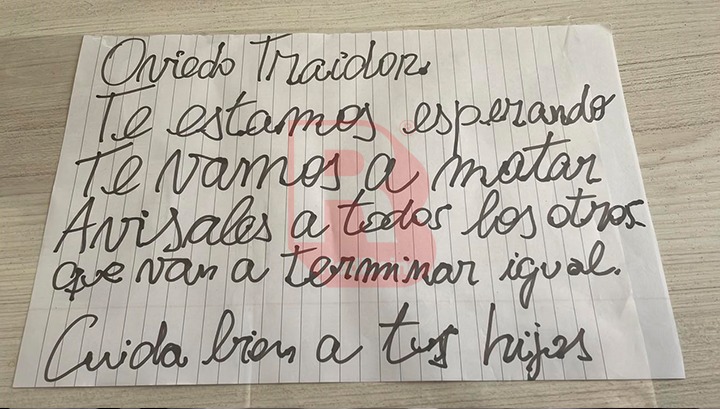 Oviedo Traidor.
Te estamos esperando
Te vamos a matar
Avisales a todos los otros
que van a terminar igual.
Cuida bien a tus hijos